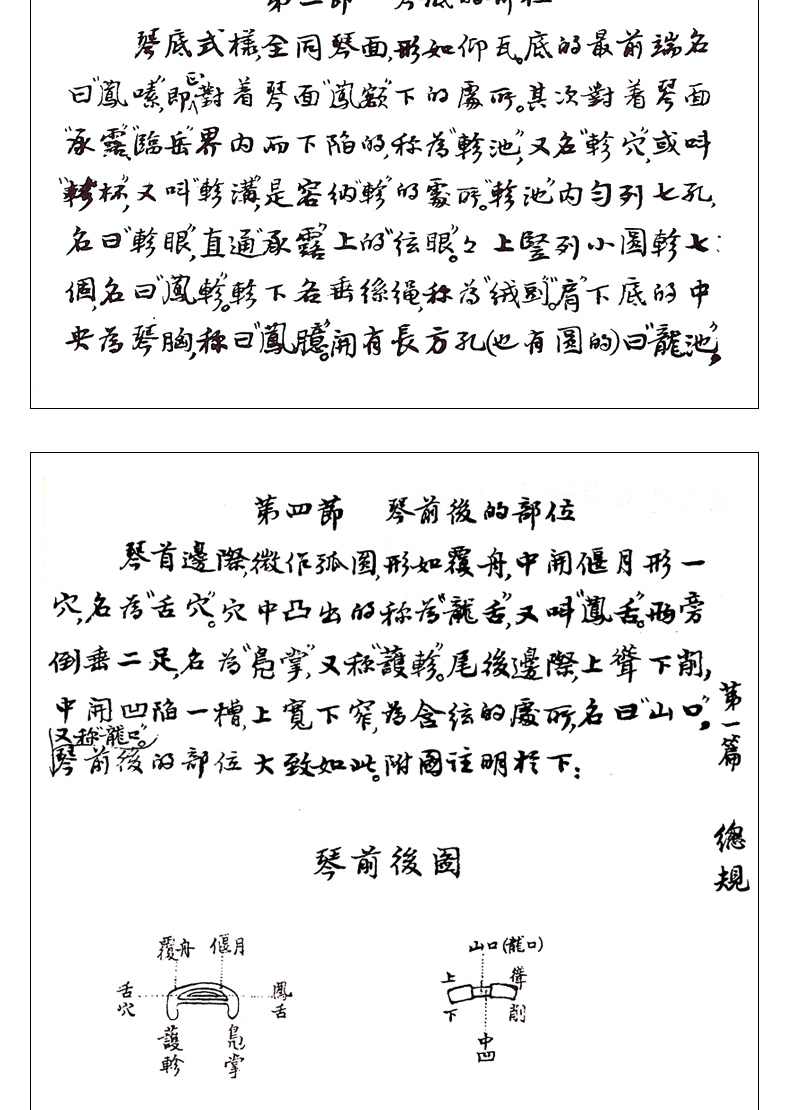 琴底式樣,全同琴面,形如仰瓦。底的最前端名
曰"鳳嗉",即正對着琴面"鳳額"下的處所。其次對着琴面
"承露""臨岳"界內而下陷的,称為"軫池",又名"軫穴",或叫
"軫杯",又叫"軫溝",是容納"軫"的處所。"軫池"內勻列七孔,
名曰"軫眼",直通"承露"上的"弦眼"。々上竪列小圓軫七
個,名曰"鳳軫"。軫下各垂絲繩,称為"絨剅"。"肩"下底的中
央為琴胸,称曰"鳳臆"。開有長方孔(也有圆的)曰"龍池",
第四節 琴前後的部位
琴首邊際,微作弧圓,形如覆舟,中開偃月形一
穴,名為"舌穴"。穴中凸出的称為"龍舌",又叫"鳳舌"。两旁
倒垂二足,名為"鳧掌",又称"護軫"。尾後邊際,上聳下削,
中開凹陷一槽,上寬下窄,為含弦的處所,名曰"山口",
又称"龍口"。
琴前後的部位大致如此。附圖注明於下:
第一篇 總規
琴前後圖
覆舟 偃月
舌穴
鳳舌
護軫
鳧掌
山口(龍口)
上 聳
下 削
中凹